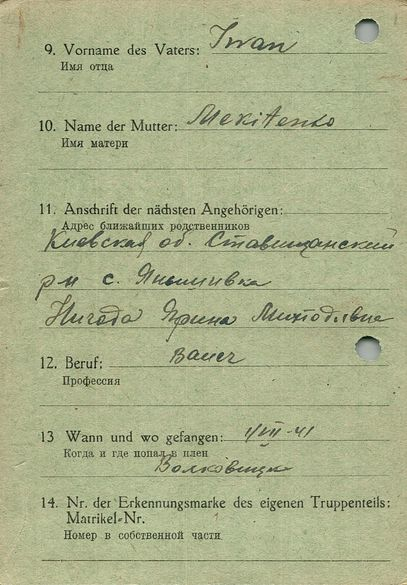 9. Vorname des Vaters: Iwan
Имя отца
10. Name der Mutter: Mekitenko
Имя матери
11. Anschrift der nächsten Angehörigen:
Адрес ближайших родственников
Киевская об. Ставищанский
р-н с. Янышивка
Нигода Ярина Методивна
12. Beruf: Bauer
Профессия
13 Wann und wo gefangen: 1/VIII-41
Когда и где попал в плен
14. Nr. der Erkennungsmarke des eigenen Truppenteils:
Matrikel-Nr.
Номер в собственной части